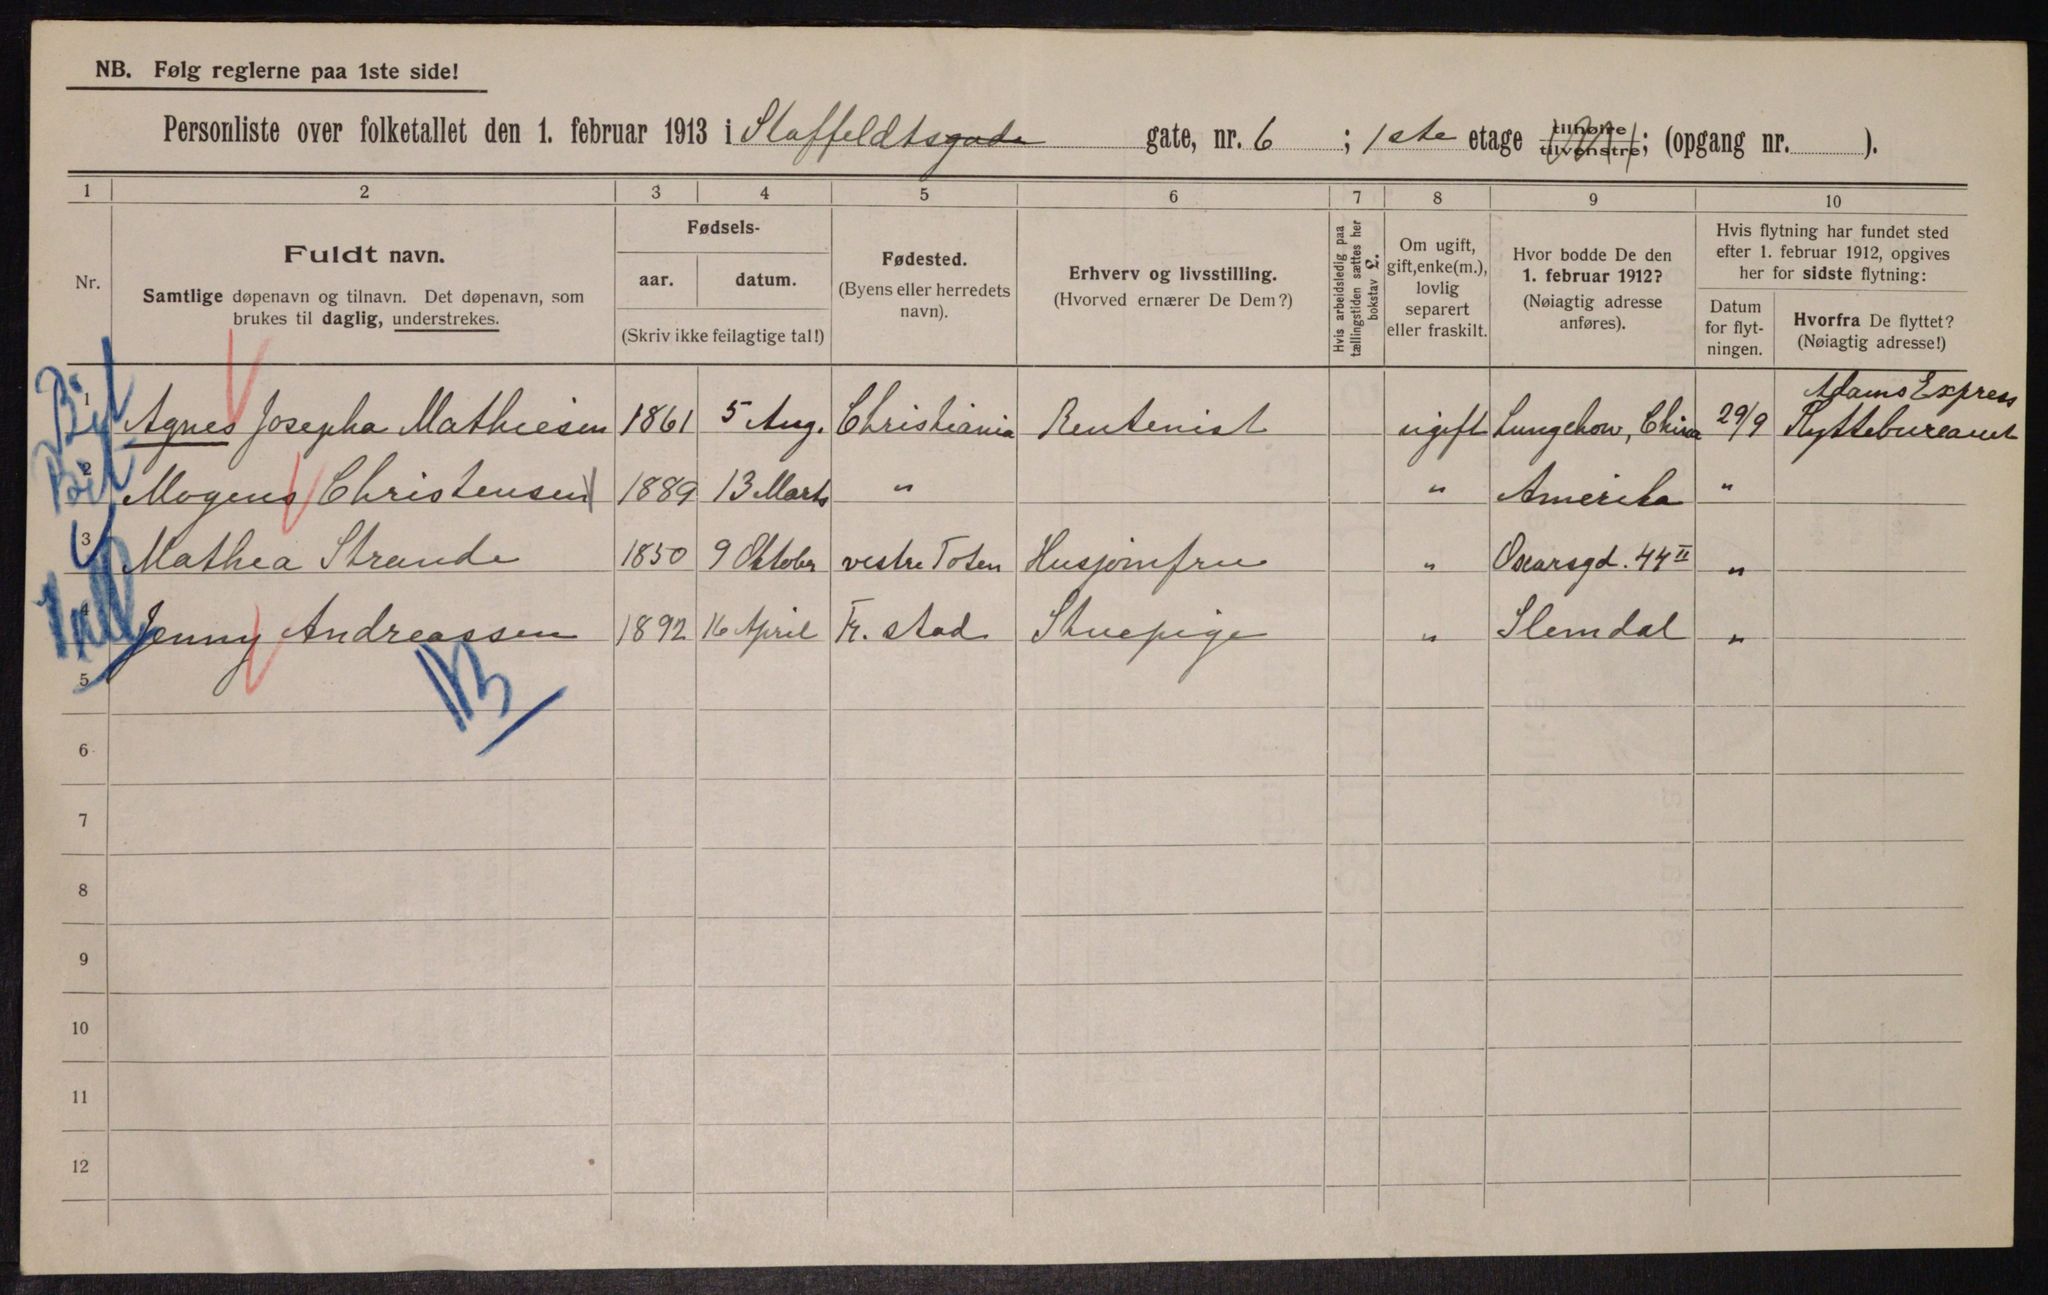 NB. Følg reglerne paa 1ste side!
Personliste over folketallet den 1. februar 1913 i Staffeldtsgade gate, nr. 6 ; 1ste etage tilhøire tilvenstre; (opgang nr. ).
1 2 3 4 5 6 7 8 9 10
Nr.
Fuldt navn.
Samtlige døpenavn og tilnavn. Det døpenavn, som
brukes til daglig, understrekes.
Fødsels-
aar. datum.
(Skriv ikke feilagtige tal!)
Fødested.
(Byens eller herredets
navn).
Erhverv og livsstilling.
(Hvorved ernærer De Dem?)
Hvis arbeidsledig paa
tællingstiden sættes her
bokstav L.
Om ugift,
gift, enke(m.),
lovlig
separert
eller fraskilt.
Hvor bodde De den
1. februar 1912?
(Nøiagtig adresse
anføres).
Hvis flytning har fundet sted
efter 1. februar 1912, opgives
her for sidste flytning:
Datum
for flyt-
ningen.
Hvorfra De flyttet?
(Nøiagtig adresse!)
1 Agnes Josepha Mathiesen 1861 5 Aug. Christiania Rentenist ugift Lungchow, China 29/9 Adams Express
Flyttebureaut
2 Mogens Christensen 1889 13 Marts " " Amerika "
3 Mathea Strande 1850 9 Oktober vestre Toten Husjomfru " Oscarsgd. 44 II "
4 Jenny Andreassen 1892 16 April Fr. stad Stuepige " Slemdal "
5
6
7
8
9
10
11
12